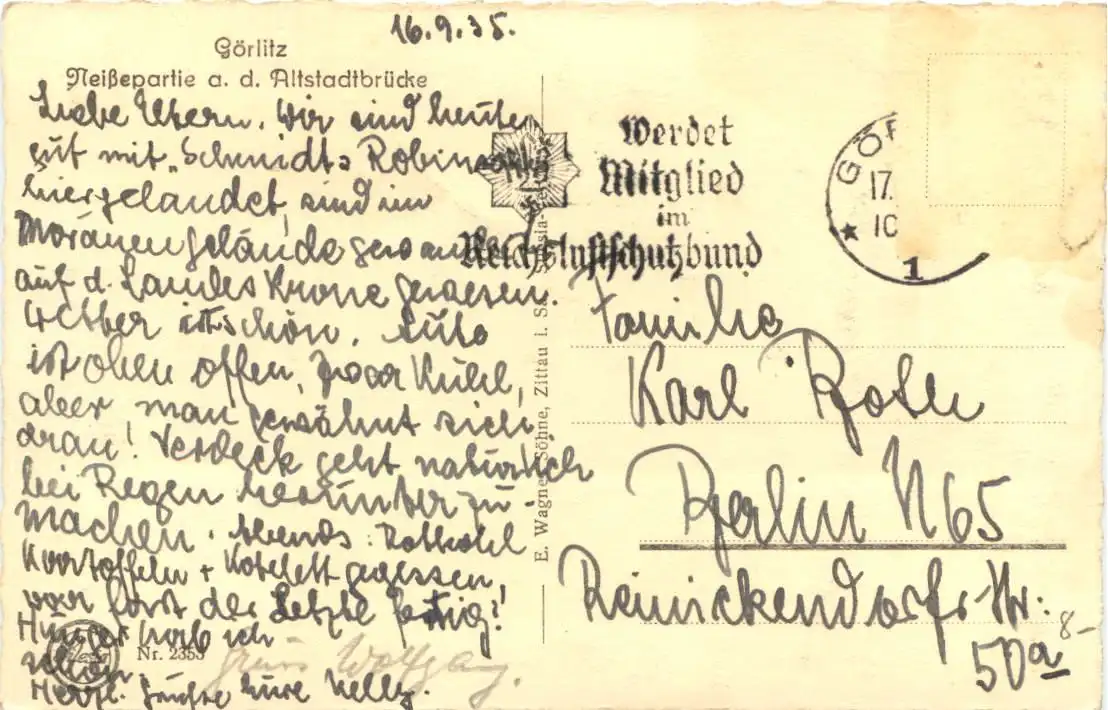 16.9.35.
Görlitz
Neißepartie a. d. Altstadtbrücke
Liebe Eltern. Wir sind heute
gut mit „Schmidts
hier gelandet, sind im
Moränengelände
auf d. Landeskrone gewesen.
Wetter ist schön. Auto
ist oben offen, zwar kühl,
aber man gewöhnt sich
dran! Verdeck geht natürlich
bei Regen herunter zu
machen. Abends: Rotkohl
Kartoffeln + Kotelett gegessen,
war fast der Letzte fertig!
Hunger hab ich
schon
Herzl. Grüße Eure Kelly.
Gruss Wolfgang.
Nr. 2353
E. Wagner Söhne, Zittau i. Sa.
Werdet
Mitglied
im
Reichsluftschutzbund
GÖR
17.
10
* 1
Familie
Karl Roth
Berlin N 65
Reinickendorfer Str.
50a
8-